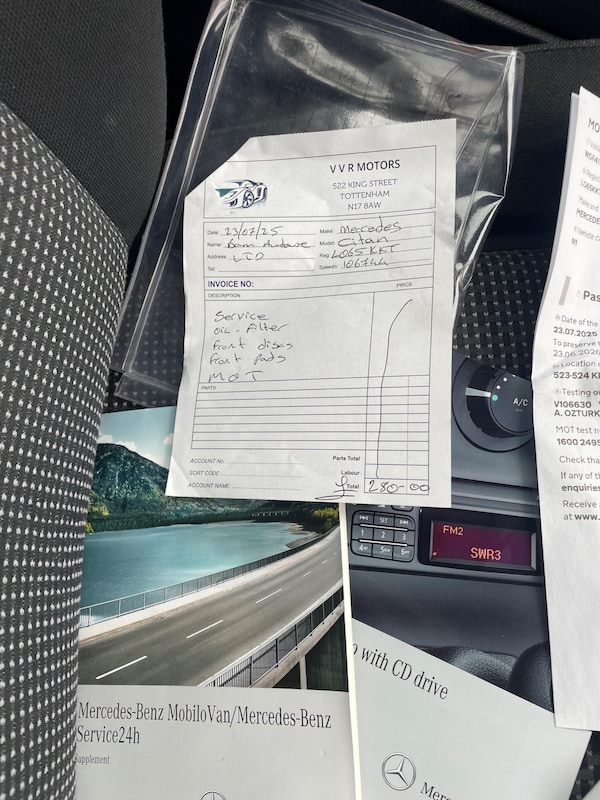 V V R MOTORS
522 KING STREET
TOTTENHAM
N17 8AW
Date: 23/07/25
Make: Mercedes
Name:
Model: Citan
Address: LTD
Reg: LO65 KKT
Tel:
Speedo: 106744
INVOICE NO:
DESCRIPTION
PRICE
Service
oil - Filter
front discs
front pads
MOT
PARTS
ACCOUNT No
Parts Total
SORT CODE
Labour
ACCOUNT NAME
£ Total 280-00
MO
N1
Pas
Date of the
23.07.2025
To preserve
23.06.2026
Location o
523-524 KI
Testing or
V106630
A. OZTURK
MOT test n
1600 2495
Check tha
If any of t
enquiries
Receive
at www.
A/C
FM2
SWR3
SET
1
2
3
4
5
6
o with CD drive
Mercedes-Benz MobiloVan/Mercedes-Benz
Service24h
Supplement
Mer